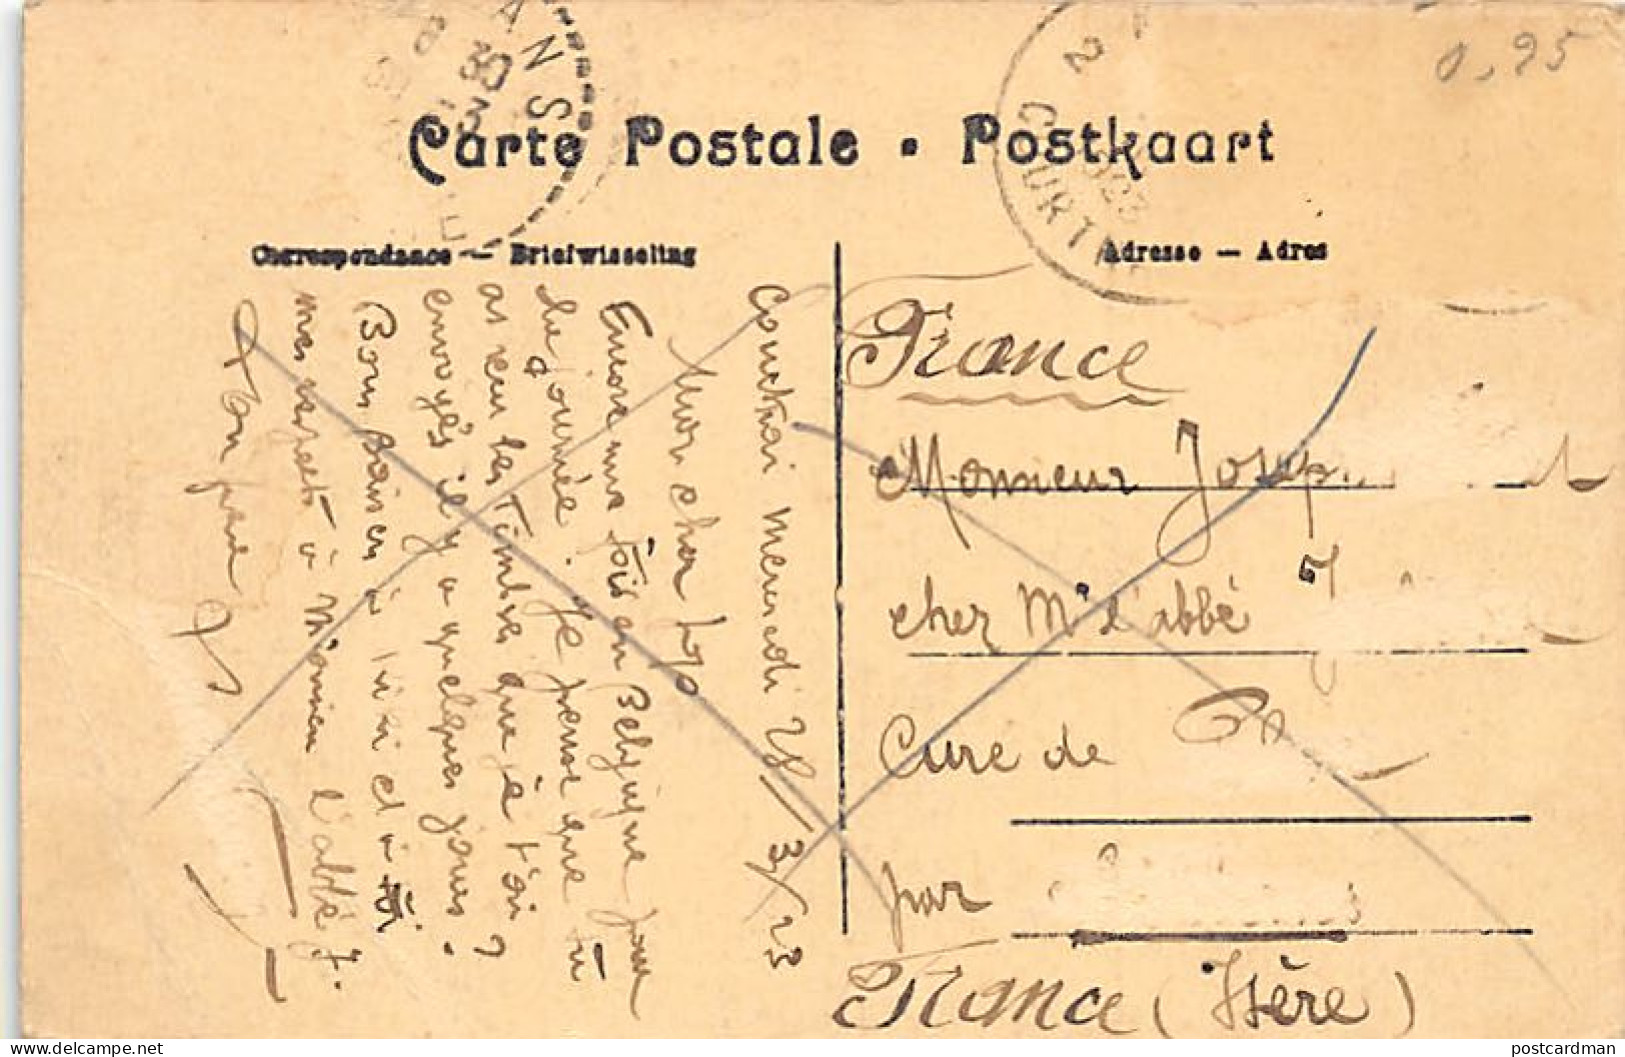 0.95
Carte Postale • Postkaart
Correspondance — Briefwisseling
Adresse — Adres
COURT
Courtrai mercredi 28/3/23
Mon cher
Encore une fois en Belgique pour
la journée. Je pense que tu
as reçu les Timbres que je t'ai
envoyés il y a quelques jours.
Bons baisers à et à toi
mes respects à Monsieur l'abbé J.
Ton père
France
Monsieur Joseph
chez Mr l'abbé J
Cure de
par
France (Isère)
postcardman